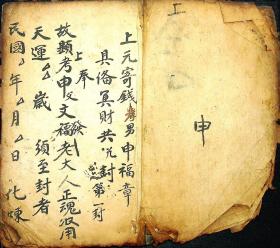 上
申
上元寄錢男申福章
具備冥財共封第一封
上奉
故顯考申文福老大人正魂冥用
天運年歲須至封者
民國年月日化煉